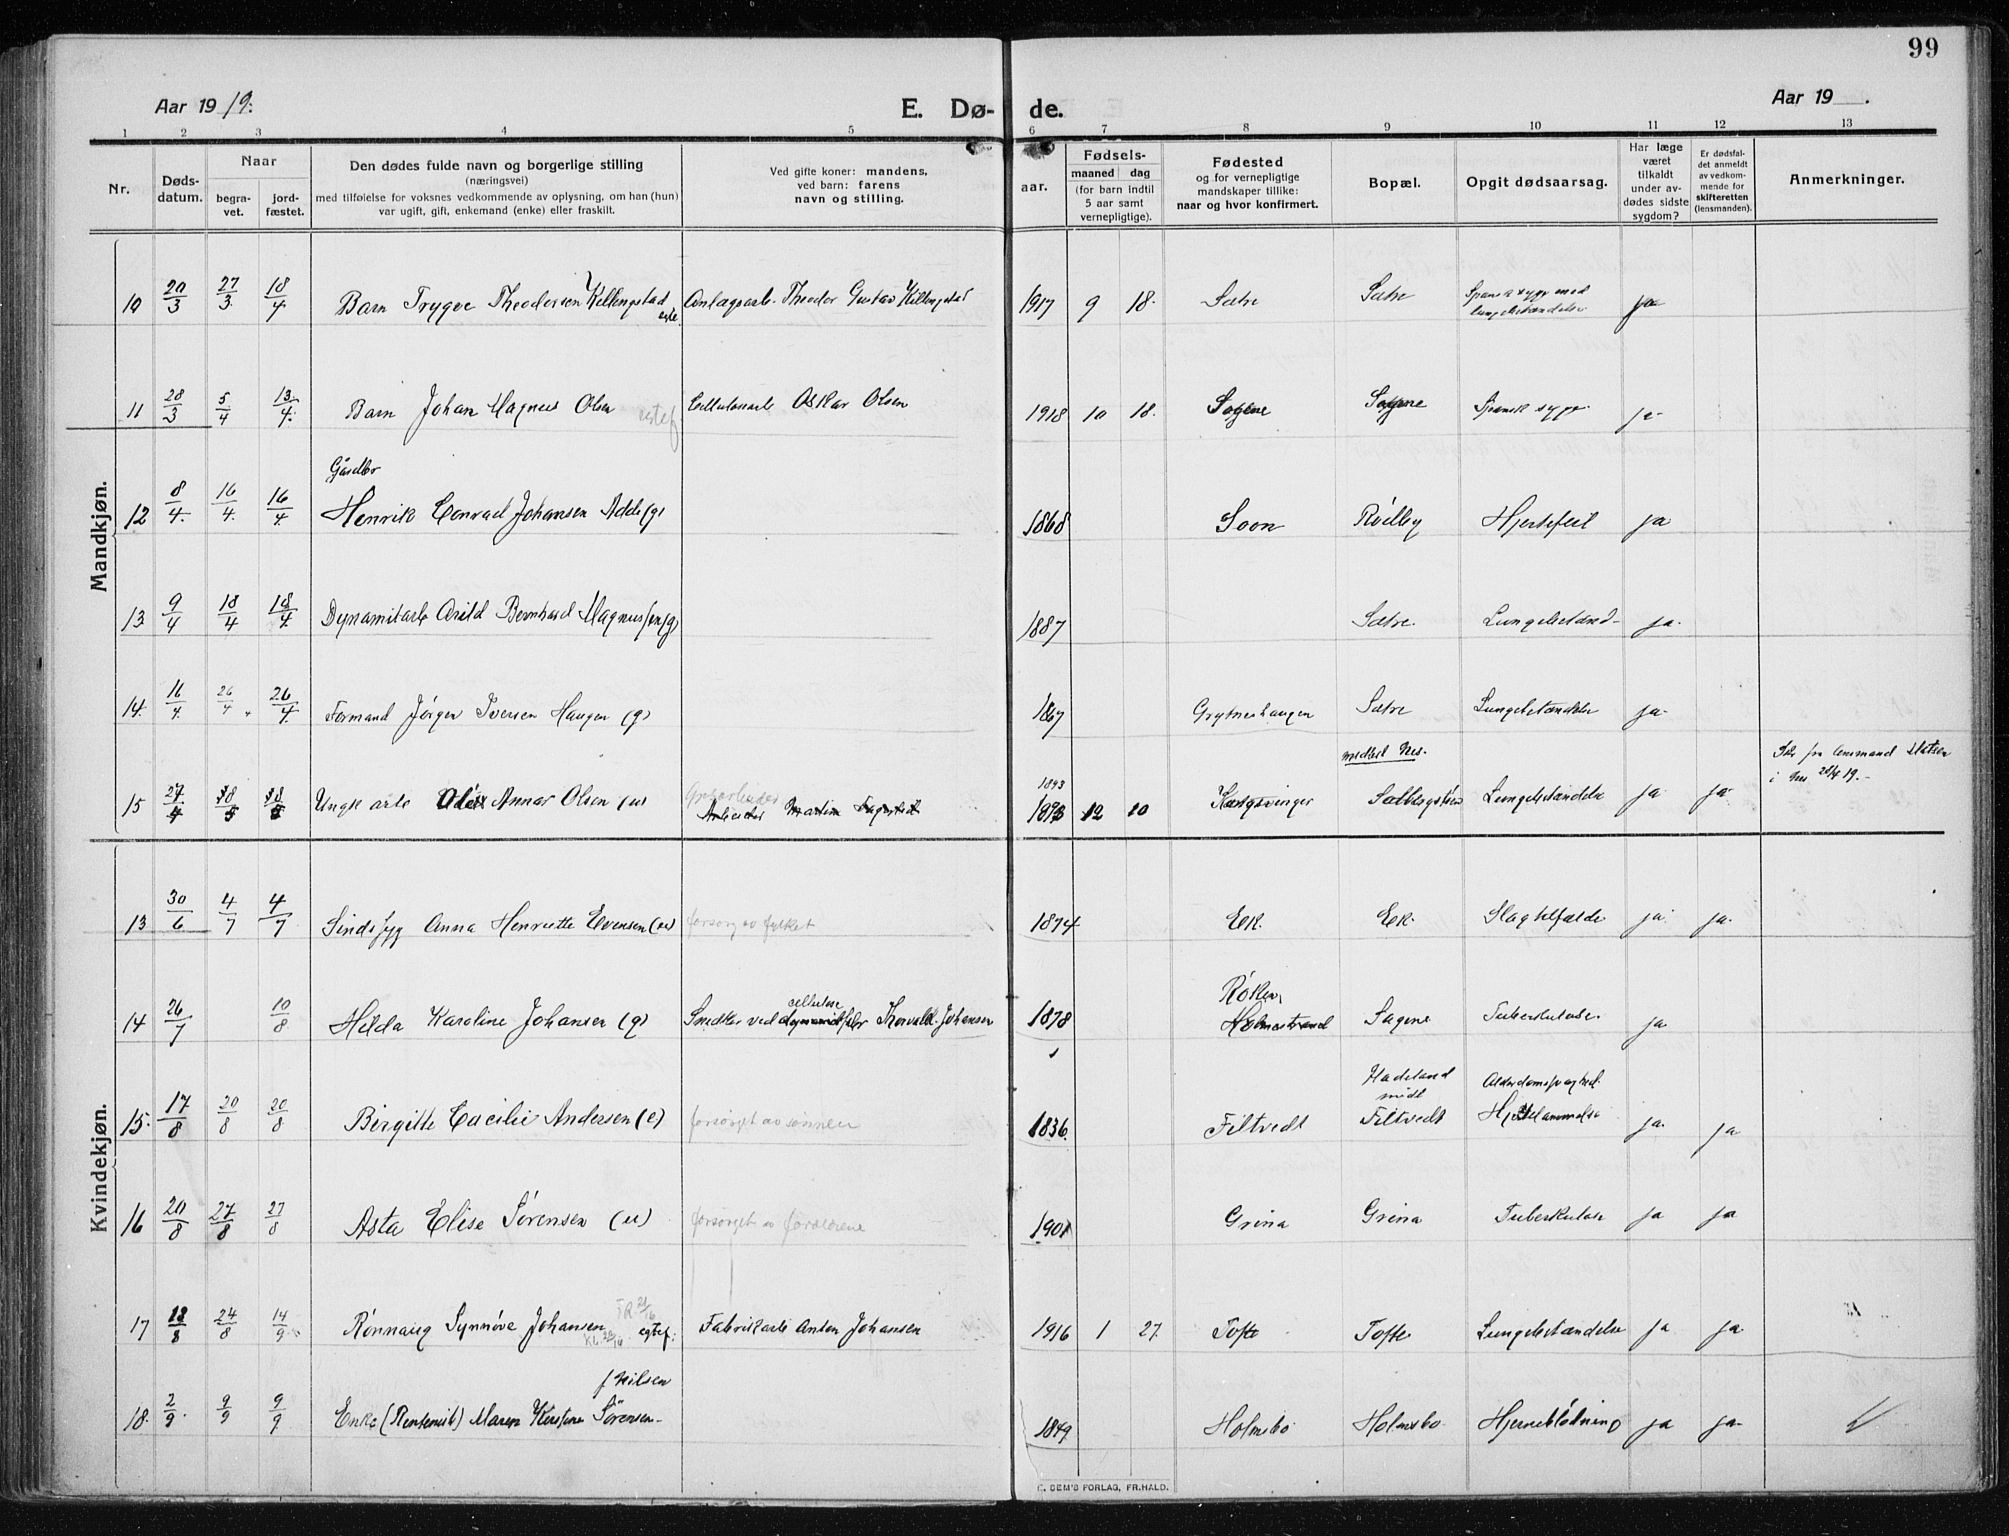 99
Aar 1919.
E. Dø-
de.
Aar 19 .
1 2 3 4 5 6 7 8 9 10 11 12 13
Nr.
Døds-
datum.
Naar
begra-
vet.
jord-
fæstet.
Den dødes fulde navn og borgerlige stilling
(næringsvei)
med tilføielse for voksnes vedkommende av oplysning, om han (hun)
var ugift, gift, enkemand (enke) eller fraskilt.
Ved gifte koner: mandens,
ved barn: farens
navn og stilling.
aar.
Fødsels-
maaned dag
(for barn indtil
5 aar samt
vernepligtige).
Fødested
og for vernepligtige
mandskaper tillike:
naar og hvor konfirmert.
Bopæl.
Opgit dødsaarsag.
Har læge
været
tilkaldt
under av-
dødes sidste
sygdom?
Er dødsfal-
det anmeldt
av vedkom-
mende for
skifteretten
(lensmanden).
Anmerkninger.
Mandkjøn.
10 20/3 27/3 18/4 Barn Trygve Theodorsen Killingstad egte. Anlægsarb. Theodor Gustav Killingstad 1917 9 18. Sætre Sætre Spansk syge med lungebetændelse ja
11 28/3 5/4 13/4. Barn Johan Magnus Olsen egtef Cellulosearb Oskar Olsen 1918 10 18. Sagene Sagene Spansk syge. ja
Gårdbr
12 8/4. 16/4. 16/4 Henrik Conrad Johansen (g) 1868 Soon Rødby Hjertefeil ja
13. 9/4 18/4 18/4 Dynamitarb Arild Bernhard Magnussen (g) 1887 Sætre. Lungebetænd- ja.
14. 16/4. 26/4 26/4 Formand Jörgen Iversen Haugen (g) 1867 Grytneshaugen Sætre Lungebetændelse ja.
15 27/4 Annar Olsen (u) Arbeider Martin 1893 12 10 Kongsvinger Lungebetændelse ja ja
Kvindekjøn.
13 30/6 4/7 4/7 Sindssyg Anna Henriette Evensen (u) forsørg. av fylket 1874 Ek. Ek. Slagtilfælde ja ja.
14 26/7 10/8 Hilda Karoline Johansen (g) Smed ved cellulose Thorvald Johansen 1878 Røken, Holmestrand Sagene Tuberkulose. ja
15. 17/8 20/8 20/8 Birgitte Cæcilie Andersen (e) forsørget av sønnen 1836. Filtvedt Filtvedt Hjertelammelse ja. ja
16 20/8 27/8 27/8 Asta Elise Sørensen (u) forsørget av forældrene 1901 Grina Grina Tuberkulose ja ja
17 18/8 24/8 14/9 Rönnaug Synnöve Johansen egtef: Fabrikarb Anton Johansen 1916 1 27. Tofte Tofte Lungebetændelse ja ja
f. Nilsen
18. 2/9. 9/9 9/9 Enke (Rentenist) Maren Kirstine Sörensen 1849 Holmsbo Holmsbo Hjerneblödning ja ja.
E. SEM'S FORLAG, FR.HALD.